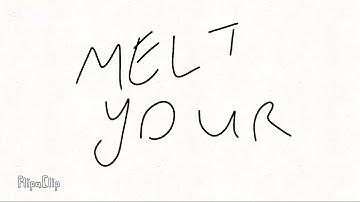 MELT
YOUR
FlipaClip